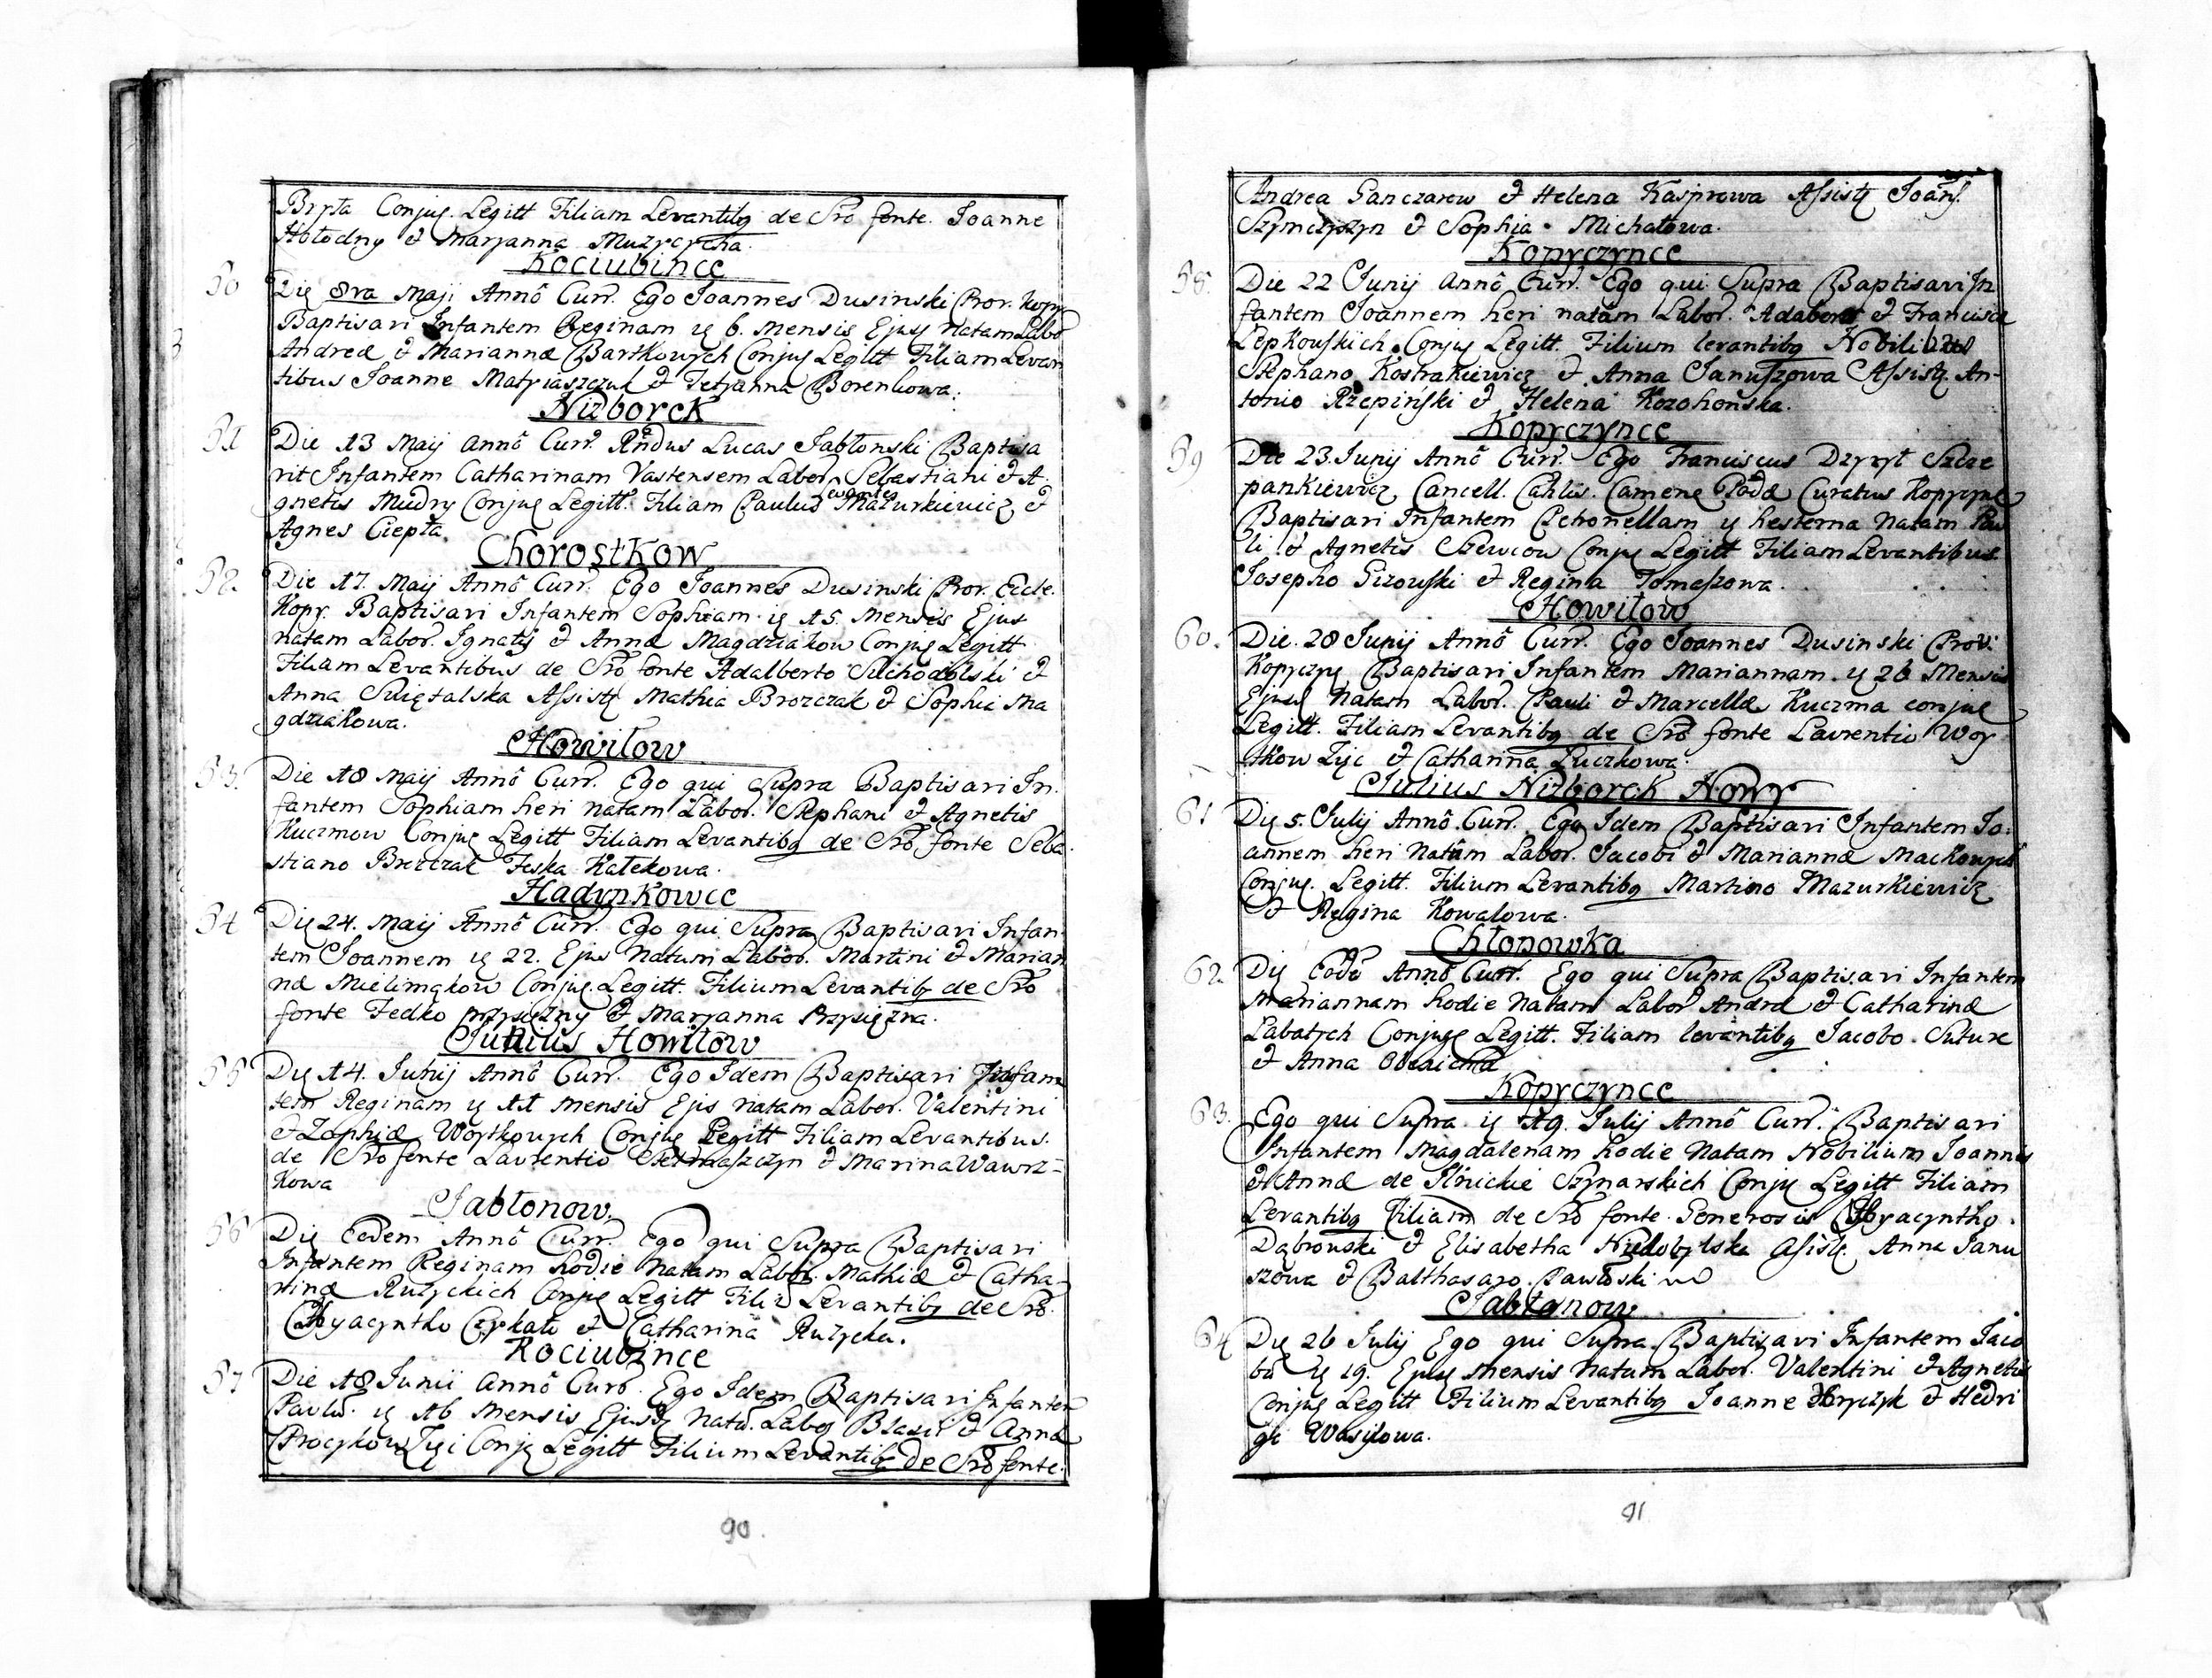 Bryta Conjug. Legitt Filiam Levantibq de Sro fonte. Joanne
Hołodny & Maryanna Muzyczycha.
Kociubince
50 Die 8va Maji Annô Curr. Ego Joannes Dusinski Pror. Kopy
Baptisavi Infantem Reginam q 6. mensis Ejusq natam Labor
Andreæ & Mariannæ Bartkowych Conjug Legitt Filiam Levan
tibus Joanne Matyiaszczuk & Tetyanna Borenkowa.
Nizborck
51 Die 13 Maij Annô Curr. Rndus Lucas Jabłonski Baptisa
vit Infantem Catharinam Vastensem Labor. Sebastiani & A
gnetis Mudry Conjug Legitt. Filiam Paulus Mazurkiewicz &
Agnes Ciepła.
Chorostkow
52. Die 17. Maij Annô Curr. Ego Joannes Dusinski Pror. Eccle.
Kopy. Baptisavi Infantem Sophiam q 15. Mensis Ejus
natam Labor. Ignatij & Annæ Magdziakow Conjug Legitt
Filiam Levantibus de Sro fonte Adalberto Suchodolski &
Anna Swiętalska Assistq Mathia Brozczak & Sophia Ma
gdziakowa.
Howiłow
53. Die 18 Maij Annô Curr. Ego qui Supra Baptisavi In
fantem Sophiam heri natam Labor. Stephani & Agnetis
Kuczmow Conjug Legitt Filiam Levantibq de Srô fonte Seba
stiano Brezczak Feska Katekowa.
Hadynkowce
54 Die 24. Maij Annô Curr. Ego qui Supra Baptisavi Infan
tem Joannem q 22. Ejus Natum Labor. Martini & Marian
næ Mielimąkow Conjug. Legitt. Filium Levantibq de Sro
fonte Fedko przysięzny & Maryanna Przysięzna.
Junius Howiłow
55 Die 14. Junij Annô Curr. Ego Idem Baptisavi Infan
tem Reginam q 11 mensis Ejis natam Labor. Valentini
& Zophiæ Woytkowych Conjug Legitt Filiam Levantibus.
de Sro fonte Laurentio & Marina Wawrz=
kowa
Jabłonow.
56 Die Eodem Annô Curr. Ego qui Supra Baptisavi
Infantem Reginam hodie Natam Labor. Mathiæ & Catha=
rinæ Ruzyckich Conjug Legitt Levantibq de Sro.
Hyacyntho & Catharina Ruzycka.
Kociubince
57 Die 18 Junii Annô Curr. Ego Idem Baptisavi Infanten
Pavlū. q 16 Mensis Ejusdq Natū. Labor Blasii & Annæ
Conjg Legitt Filium Levantibq de Srô fonte.
90.
Andrea Ganczarow & Helena Kasprowa Assistq Joan.
Szymczyszyn & Sophia Michałowa.
Kopyczynce
58. Die 22 Junij Annô Curr. Ego qui Supra Baptisavi In
fantem Joannem heri natam Labor. & Franciscæ
Lepkowskich Conjug Legitt. Filium levantibq
Stephano Kostrakiewicz & Anna Januszowa Assistq. An-
tonio Rzepinski & Helena Kozohonska.
Kopyczynce
59 Die 23. Junij Annô Curr. Ego Franciscus Dzyryt Szcze
pankiewicz Cancell. Camene Curatus Kopyczynq
Baptisavi Infantem Petronellam q hesterna Natam Pau
li & Agnetis Szewcow Conjug Legitt Filiam Levantibus
Josepho Gizowski & Regina Tomaszowa.
Howiłow
60. Die. 28 Junij Annô Curr. Ego Joannes Dusinski Prov.
Kopyczyq Baptisavi Infantem Mariannam. q 26 Mensis
Ejusq Natam Labor. Pauli & Marcellæ Kuczma conjug
Legitt. Filiam Levantibq de Srô fonte Laurentio Woy
tkow Zyc & Catharina Luczkowa.
Julius Nizborck Nowy
61 Die 5. Julij Annô. Curr. Ego Idem Baptisavi Infantem Jo.
annem heri Natūm Labor. Jacobi & Mariannæ Mackowych
Conjug. Legitt. Filium Levantibq Martino Mazurkiewicz
& Regina Kowalowa.
Chłopowka
62. Die Eodē Annô Curr. Ego qui Supra Baptisavi Infantem
Mariannam hodie Natam Labor Andreæ & Catharinæ
Labatych Conjugq Legitt. Filiam levantibq Jacobo.
& Anna
Kopyczynce
63. Ego qui Supra q 19. Julij Annô Curr. Baptisavi
Infantem Magdalenam hodie Natam Nobilium Joannis
& Annæ de Ilnickie Szynarskich Conjg Legitt Filiam
Levantibq Filiam de Srô fonte. Generosis Hyacyntho.
Dąbrowski & Elisabetha Assistq. Anna Janu
szowa & Balthasaro. Pawłoski
Jabłonow
64 Die 26 Julij Ego qui Supra Baptizavi Infantem Jaco
bū q 19. Ejusq Mensis Natum Labor. Valentini & Agnetis
Conjug Legitt Filium Levantibq Joanne Hryczyk & Hedvi
ge Wasylowa.
91